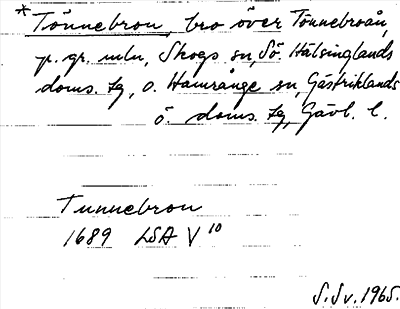 * Tönnebron, bro över Tönnebroån,
p. gr. mln, Skogs sn, Sö. Hälsinglands
doms. tg, o. Hamrånge sn, Gästriklands
ö. doms. tg, Gävl. l.
Tunnebron
1689 LSA V 10
S. Sv. 1965.